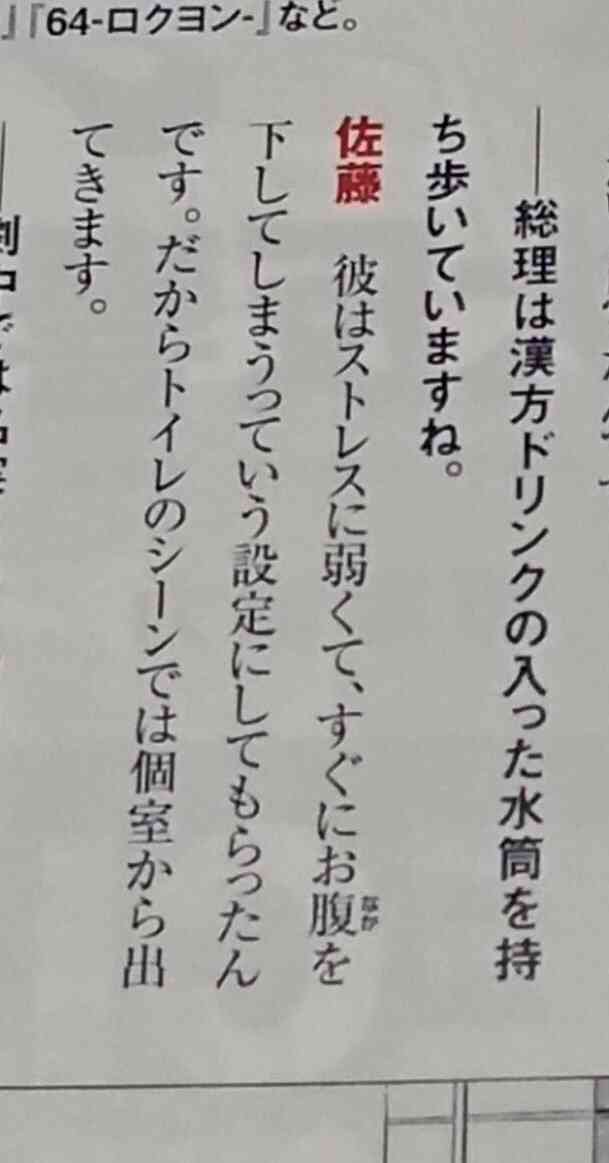 』『64-ロクヨン-』など。
――総理は漢方ドリンクの入った水筒を持
ち歩いていますね。
佐藤　彼はストレスに弱くて、すぐにお腹を
なか
下してしまうっていう設定にしてもらったん
です。だからトイレのシーンでは個室から出
てきます。